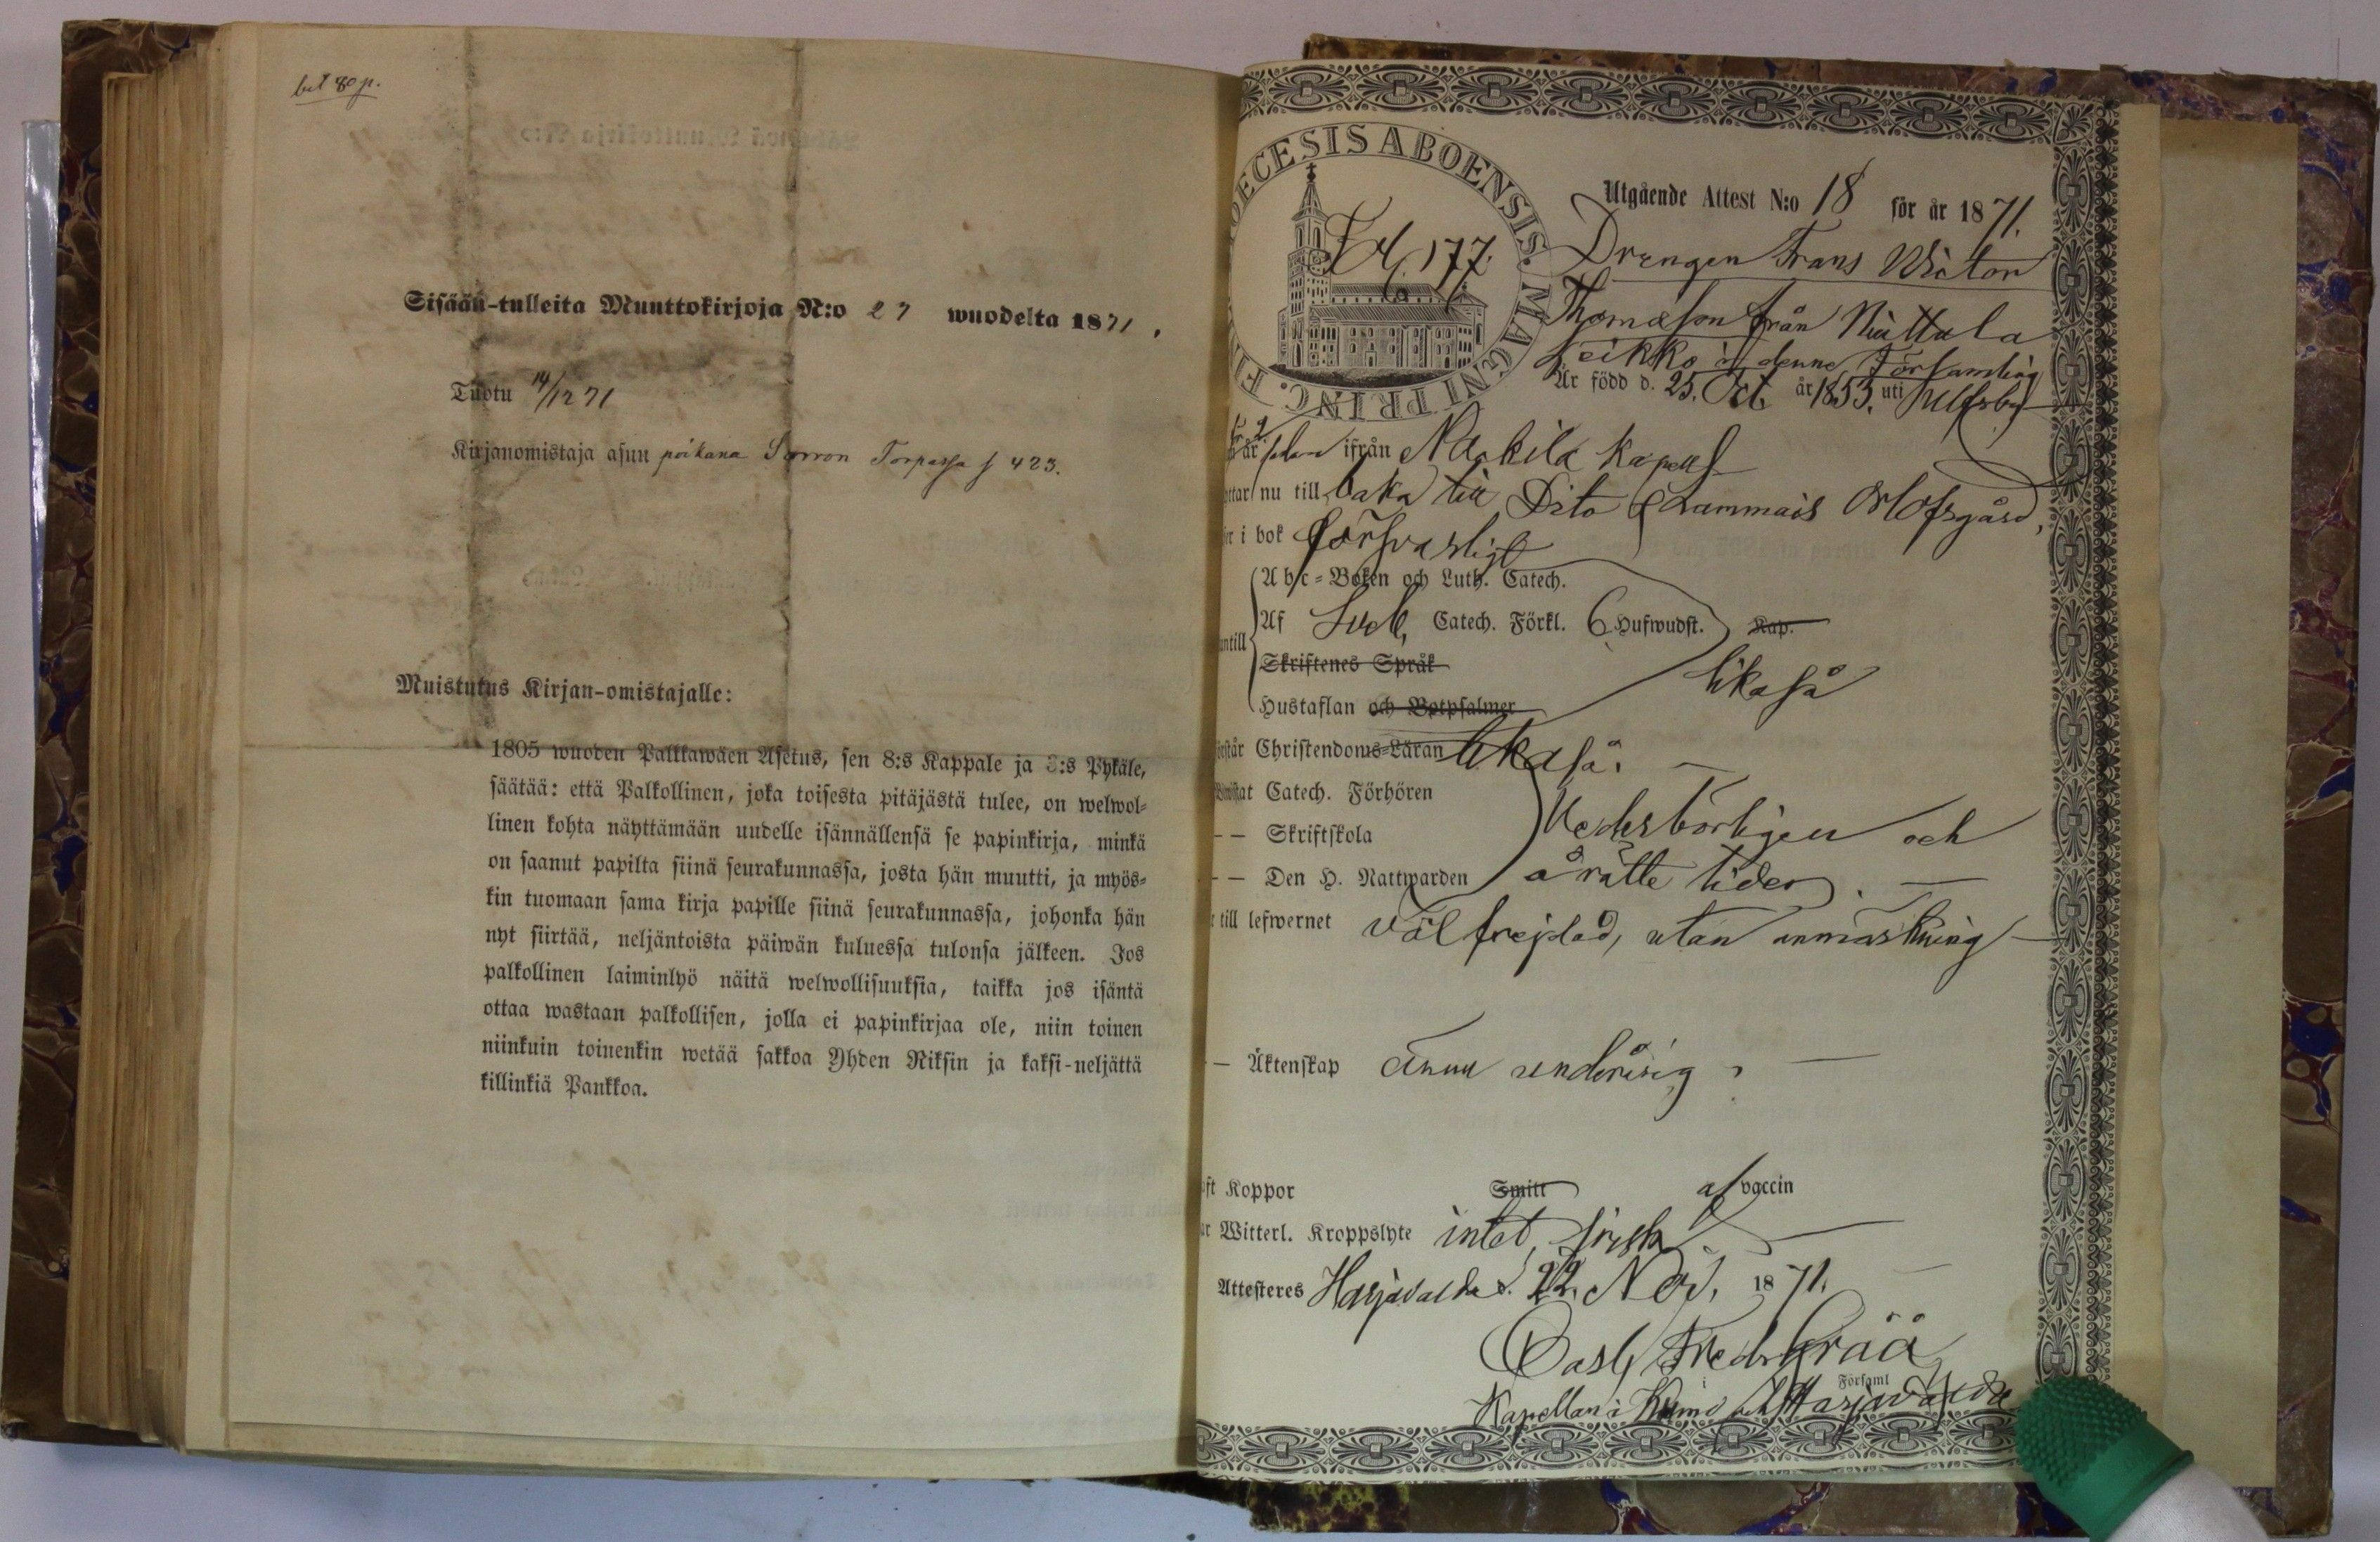 bet 80 p.
Sisään-tulleita Muuttokirjoja N:o 27 wuodelta 1871.
Tuotu 14/12 71
Kirjanomistaja asuu poikana Torpassa s 423.
Muistutus Kirjan-omistajalle:
1805 wuoden Palkkawäen Asetus, sen 8:s Kappale ja 3:s Pykäle,
säätää: että Palkollinen, joka toisesta pitäjästä tulee, on welwol-
linen kohta näyttämään uudelle isännällensä se papinkirja, minkä
on saanut papilta siinä seurakunnassa, josta hän muutti, ja myös-
kin tuomaan sama kirja papille siinä seurakunnassa, johonka hän
nyt siirtää, neljäntoista päiwän kuluessa tulonsa jälkeen. Jos
palkollinen laiminlyö näitä welwollisuuksia, taikka jos isäntä
ottaa wastaan palkollisen, jolla ei papinkirjaa ole, niin toinen
niinkuin toinenkin wetää sakkoa Yhden Riksin ja kaksi-neljättä
killinkiä Pankkoa.
OECESIS ABOENSIS. MAGNI PRINC. FIN
177.
Utgående Attest N:o 18 för år 1871.
Drengen Frans Victor
Thomasson från Nättala
Leikko i denne Församling
Är född d. 25. Oct. år 1853. uti Ulfsby
år sedan ifrån Nackila kapell
ttar nu till baka till Dito & Lammais Olofsgård,
er i bok försvarligt
Abc-Boken och Luth. Catech.
Af Sveb. Catech. Förkl. 6 Hufwudst. Kap.
untill
Skriftenes Språk
likaså
Hustaflan och Botpsalmer
örstår Christendoms-Läran likaså.
Biwistat Catech. Förhören
— — Skriftskola Vederbörligen och
— — Den H. Nattwarden å rätte tider.
t till lefwernet välfrejdad, utan anmärkning
— — Äktenskap ännu underårig.
ft Koppor Smitt af vaccin
ar Witterl. Kroppslyte intet, frisk
Attesteres Harjavalda d. 22. Nov. 1871.
Carl Fredr. Gråå
Kapellan i Kumo och Harjavalda Församl